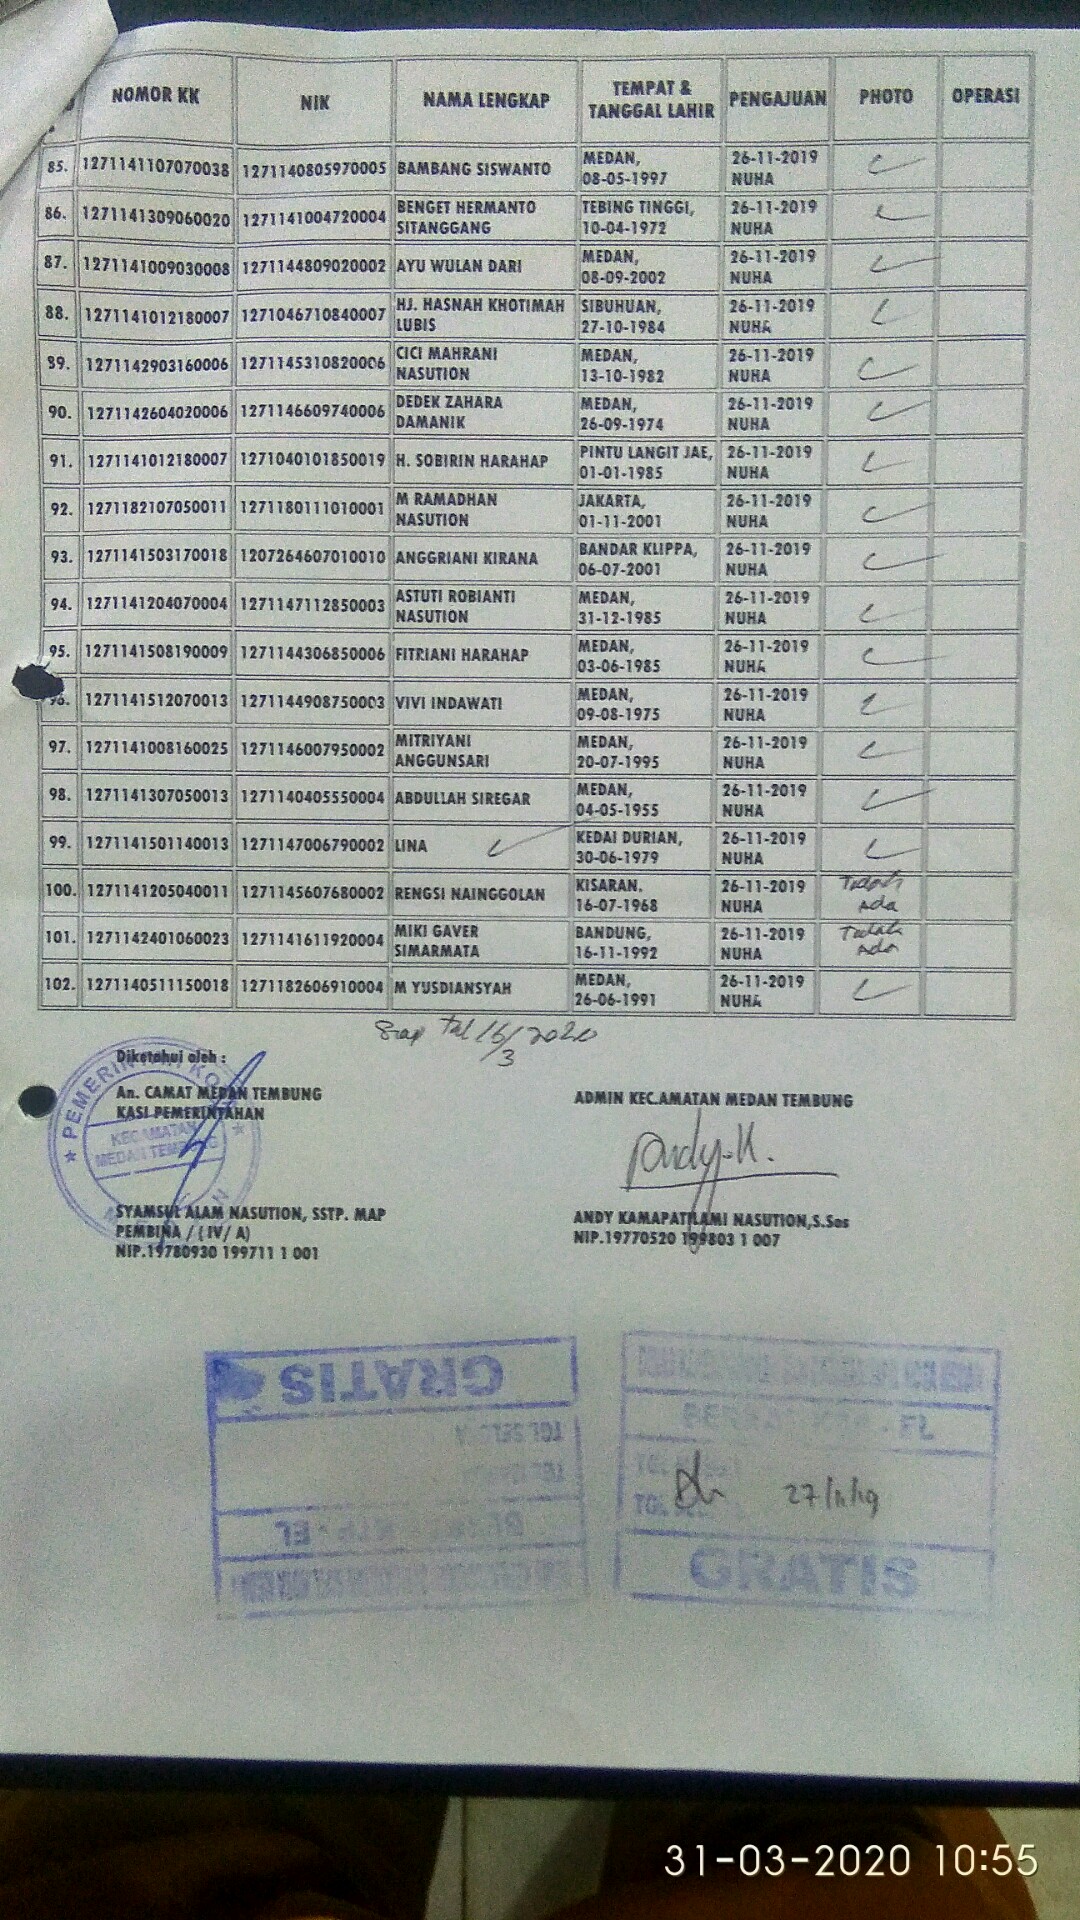 NOMOR KK NIK NAMA LENGKAP TEMPAT & TANGGAL LAHIR PENGAJUAN PHOTO OPERASI
85. 1271141107070038 1271140805970005 BAMBANG SISWANTO MEDAN, 08-05-1997 26-11-2019 NUHA
86. 1271141309060020 1271141004720004 BENGET HERMANTO SITANGGANG TEBING TINGGI, 10-04-1972 26-11-2019 NUHA
87. 1271141009030008 1271144809020002 AYU WULAN DARI MEDAN, 08-09-2002 26-11-2019 NUHA
88. 1271141012180007 1271046710840007 HJ. HASNAH KHOTIMAH LUBIS SIBUHUAN, 27-10-1984 26-11-2019 NUHA
89. 1271142903160006 1271145310820006 CICI MAHRANI NASUTION MEDAN, 13-10-1982 26-11-2019 NUHA
90. 1271142604020006 1271146609740006 DEDEK ZAHARA DAMANIK MEDAN, 26-09-1974 26-11-2019 NUHA
91. 1271141012180007 1271040101850019 H. SOBIRIN HARAHAP PINTU LANGIT JAE, 01-01-1985 26-11-2019 NUHA
92. 1271182107050011 1271180111010001 M RAMADHAN NASUTION JAKARTA, 01-11-2001 26-11-2019 NUHA
93. 1271141503170018 1207264607010010 ANGGRIANI KIRANA BANDAR KLIPPA, 06-07-2001 26-11-2019 NUHA
94. 1271141204070004 1271147112850003 ASTUTI ROBIANTI NASUTION MEDAN, 31-12-1985 26-11-2019 NUHA
95. 1271141508190009 1271144306850006 FITRIANI HARAHAP MEDAN, 03-06-1985 26-11-2019 NUHA
96. 1271141512070013 1271144908750003 VIVI INDAWATI MEDAN, 09-08-1975 26-11-2019 NUHA
97. 1271141008160025 1271146007950002 MITRIYANI ANGGUNSARI MEDAN, 20-07-1995 26-11-2019 NUHA
98. 1271141307050013 1271140405550004 ABDULLAH SIREGAR MEDAN, 04-05-1955 26-11-2019 NUHA
99. 1271141501140013 1271147006790002 LINA KEDAI DURIAN, 30-06-1979 26-11-2019 NUHA
100. 1271141205040011 1271145607680002 RENGSI NAINGGOLAN KISARAN, 16-07-1968 26-11-2019 NUHA Tidak Ada
101. 1271142401060023 1271141611920004 MIKI GAVER SIMARMATA BANDUNG, 16-11-1992 26-11-2019 NUHA Tidak Ada
102. 1271140511150018 1271182606910004 M YUSDIANSYAH MEDAN, 26-06-1991 26-11-2019 NUHA
Siap Tgl 16/3/2020
Diketahui oleh :
An. CAMAT MEDAN TEMBUNG
KASI PEMERINTAHAN
PEMERINTAH KOTA
KECAMATAN
MEDAN TEMBUNG
SYAMSUL ALAM NASUTION, SSTP. MAP
PEMBINA / ( IV/ A)
NIP.19780930 199711 1 001
ADMIN KEC.AMATAN MEDAN TEMBUNG
Andy.K.
ANDY KAMAPATILAMI NASUTION,S.Sos
NIP.19770520 199803 1 007
GRATIS
27/11/19
GRATIS
31-03-2020 10:55